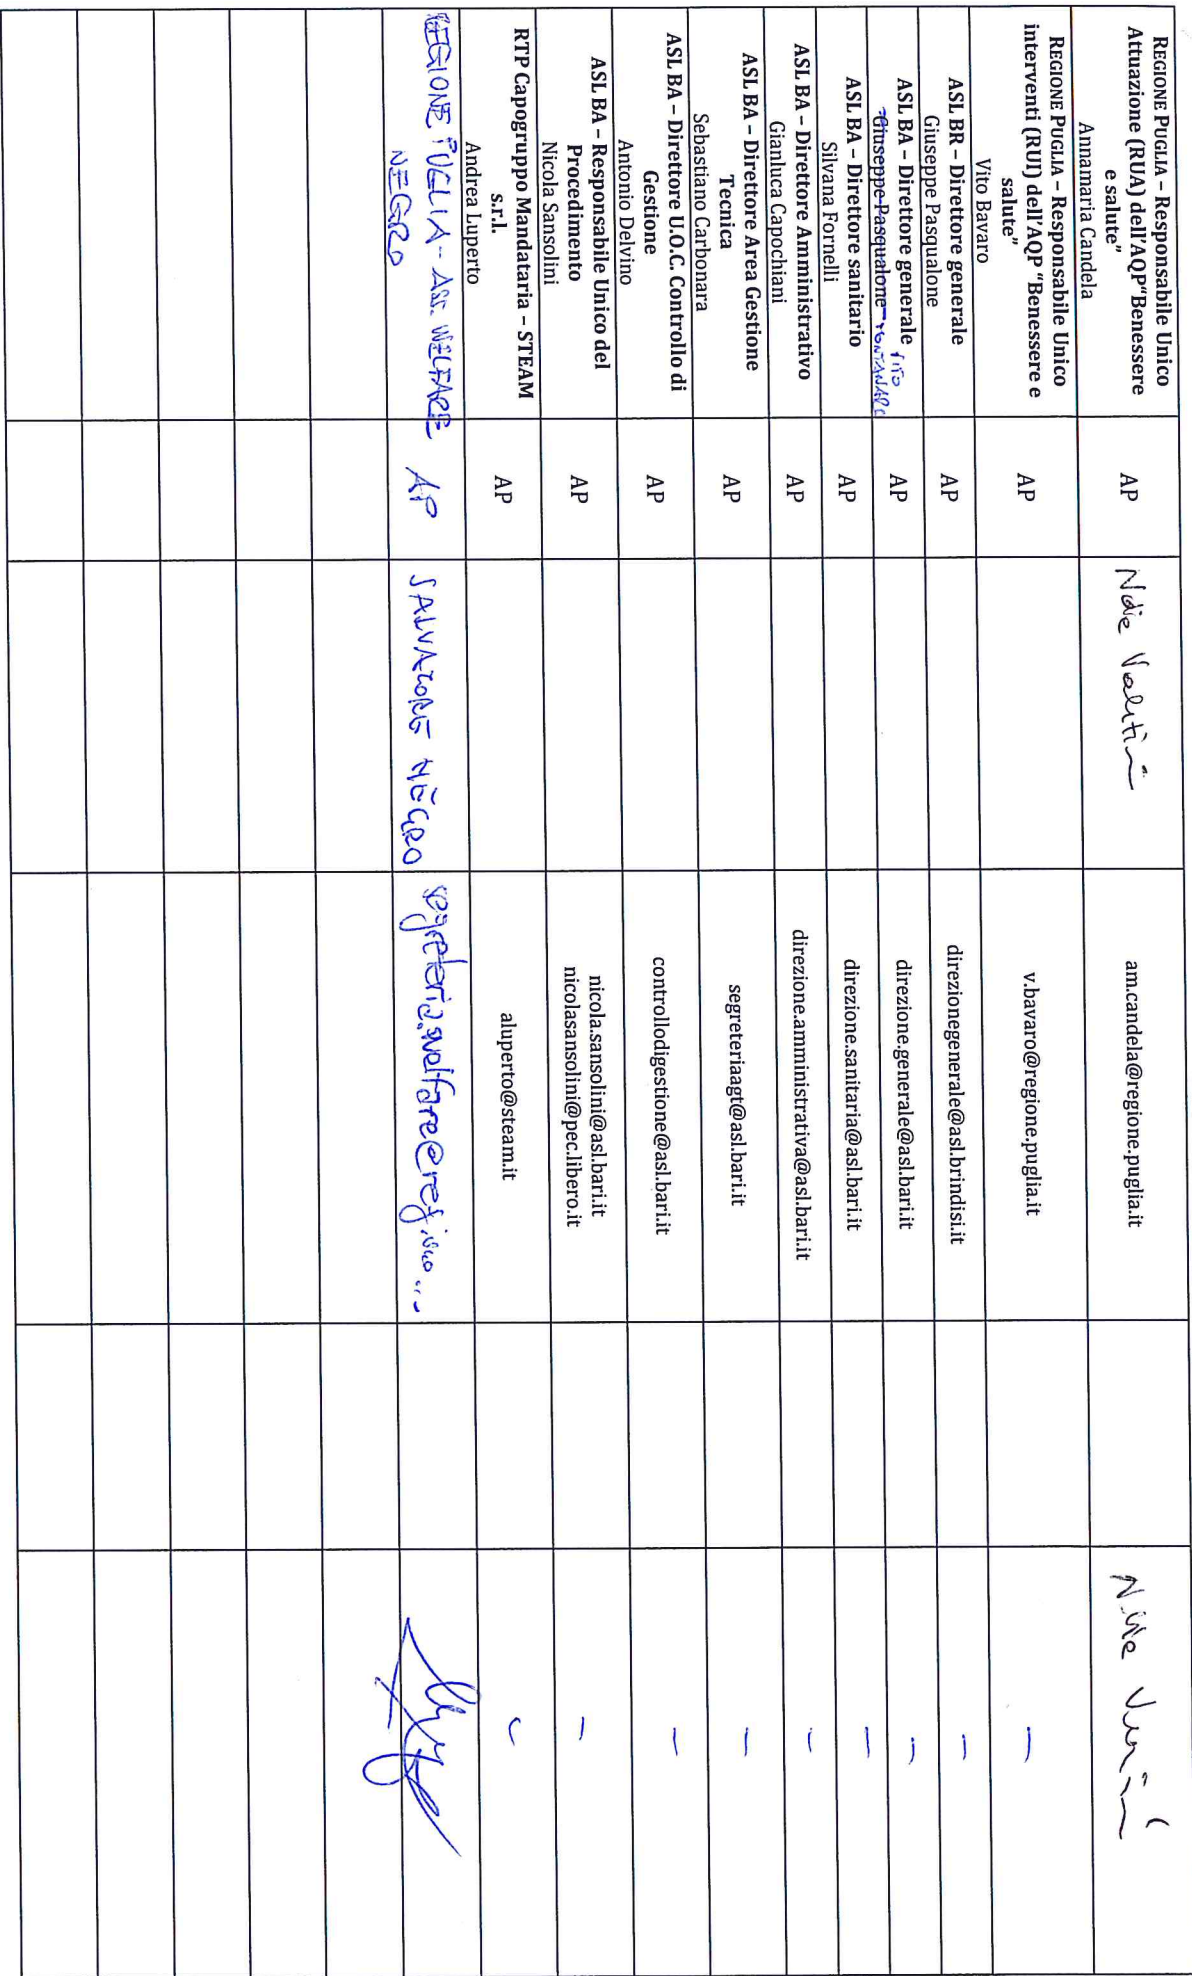 REGIONE PUGLIA – Responsabile Unico
Attuazione (RUA) dell'AQP"Benessere
e salute"
Annamaria Candela
AP
am.candela@regione.puglia.it
REGIONE PUGLIA – Responsabile Unico
interventi (RUI) dell'AQP "Benessere e
salute"
Vito Bavaro
AP
v.bavaro@regione.puglia.it
–
ASL BR – Direttore generale
Giuseppe Pasqualone
AP
direzionegenerale@asl.brindisi.it
–
ASL BA – Direttore generale
Giuseppe Pasqualone
VITO MONTANARO
AP
direzione.generale@asl.bari.it
–
ASL BA – Direttore sanitario
Silvana Fornelli
AP
direzione.sanitaria@asl.bari.it
–
ASL BA – Direttore Amministrativo
Gianluca Capochiani
AP
direzione.amministrativa@asl.bari.it
–
ASL BA – Direttore Area Gestione
Tecnica
Sebastiano Carbonara
AP
segreteriaagt@asl.bari.it
–
ASL BA – Direttore U.O.C. Controllo di
Gestione
Antonio Delvino
AP
controllodigestione@asl.bari.it
–
ASL BA – Responsabile Unico del
Procedimento
Nicola Sansolini
AP
nicola.sansolini@asl.bari.it
nicolasansolini@pec.libero.it
–
RTP Capogruppo Mandataria – STEAM
s.r.l.
Andrea Luperto
AP
aluperto@steam.it
–
REGIONE PUGLIA - ASS. WELFARE
NEGRO
AP
SALVATORE NEGRO
segreteria.welfare@regione...